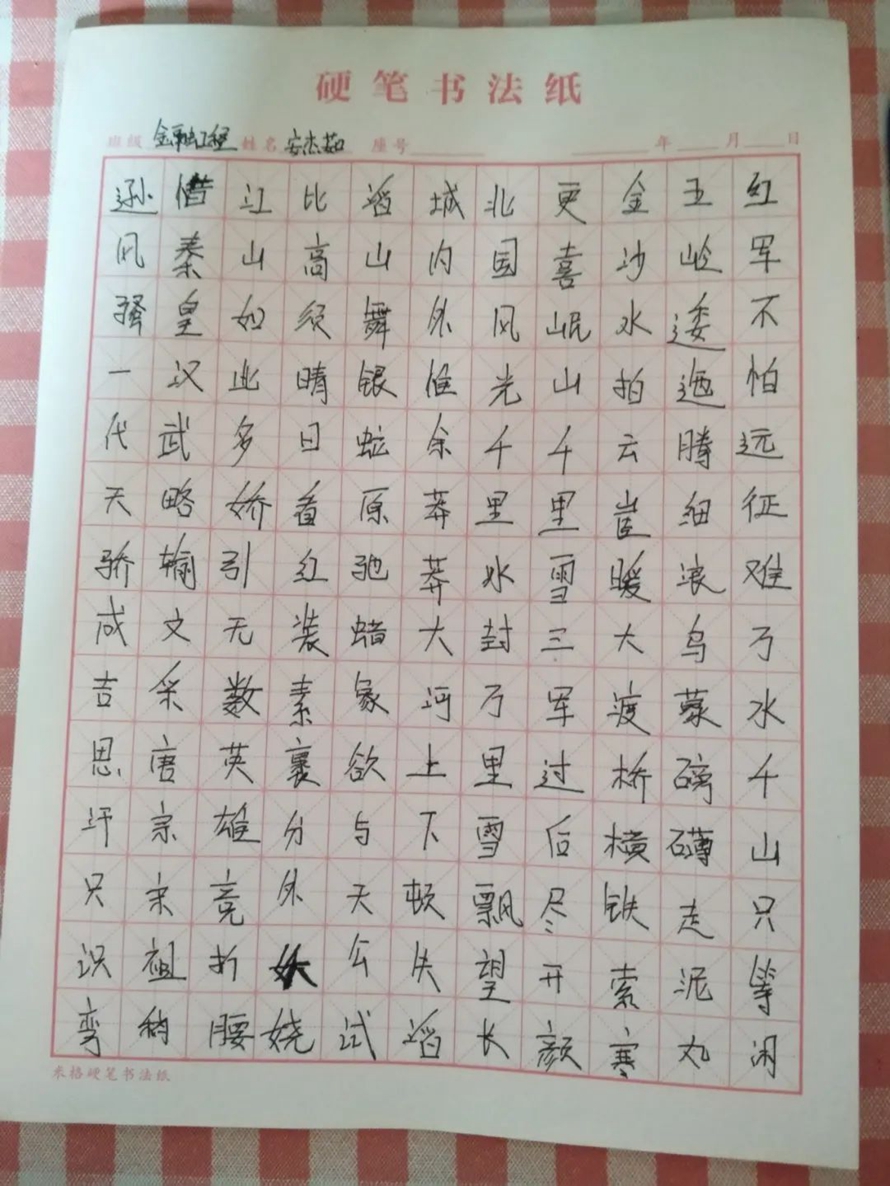 硬笔书法纸
班级 金融工程 姓名 安杰茹 座号 年 月 日
红军不怕远征难万水千山只等闲
五岭逶迤腾细浪乌蒙磅礴走泥丸
金沙水拍云崖暖大渡桥横铁索寒
更喜岷山千里雪三军过后尽开颜
北国风光千里冰封万里雪飘望长
城内外惟余莽莽大河上下顿失滔
滔山舞银蛇原驰蜡象欲与天公试
比高须晴日看红装素裹分外妖娆
江山如此多娇引无数英雄竞折腰
惜秦皇汉武略输文采唐宗宋祖稍
逊风骚一代天骄成吉思汗只识弯
米格硬笔书法纸